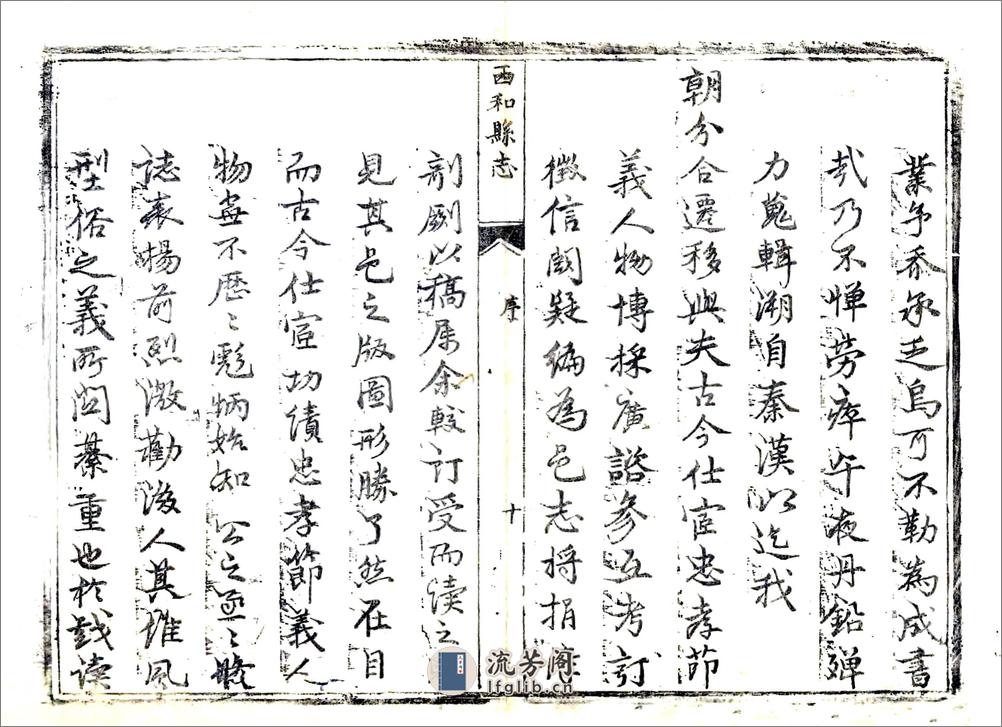 業爭忝承乏烏可不勒為成書
哉乃不憚勞瘁午夜丹鉛殫
力蒐輯溯自秦漢以迄我
朝分合遷移與夫古今仕宦忠孝節
義人物博採廣諮參互考訂
徵信闕疑編為邑志將捐俸
西和縣志
序
十
剞劂以稿屬余較訂受而讀之
見其邑之版圖形勝了然在目
而古今仕宦功績忠孝節義人
物盡不歷歷彪炳始知公之亟亟
誌表揚前烈激勸後人其維風
型俗之義所關綦重也於戲讀
流芳閣
lfglib.cn